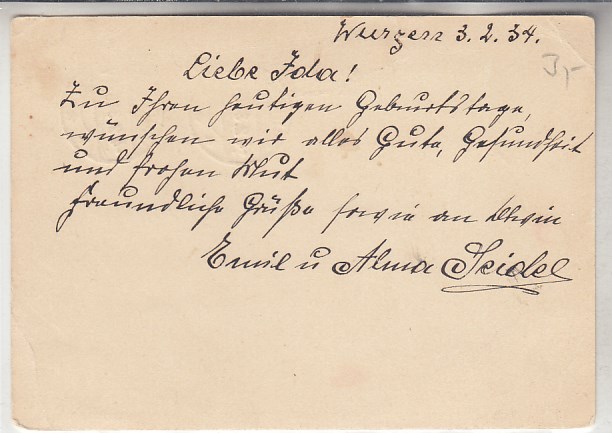 Wurzen 3.2.34.
3,-
Liebe Ida!
Zu Ihren heutigen Geburtstage,
wünschen wir alles Gute, Gesundheit
und frohen Mut
Freundliche Grüße sowie an Alwin
Emil u Alma Seidel